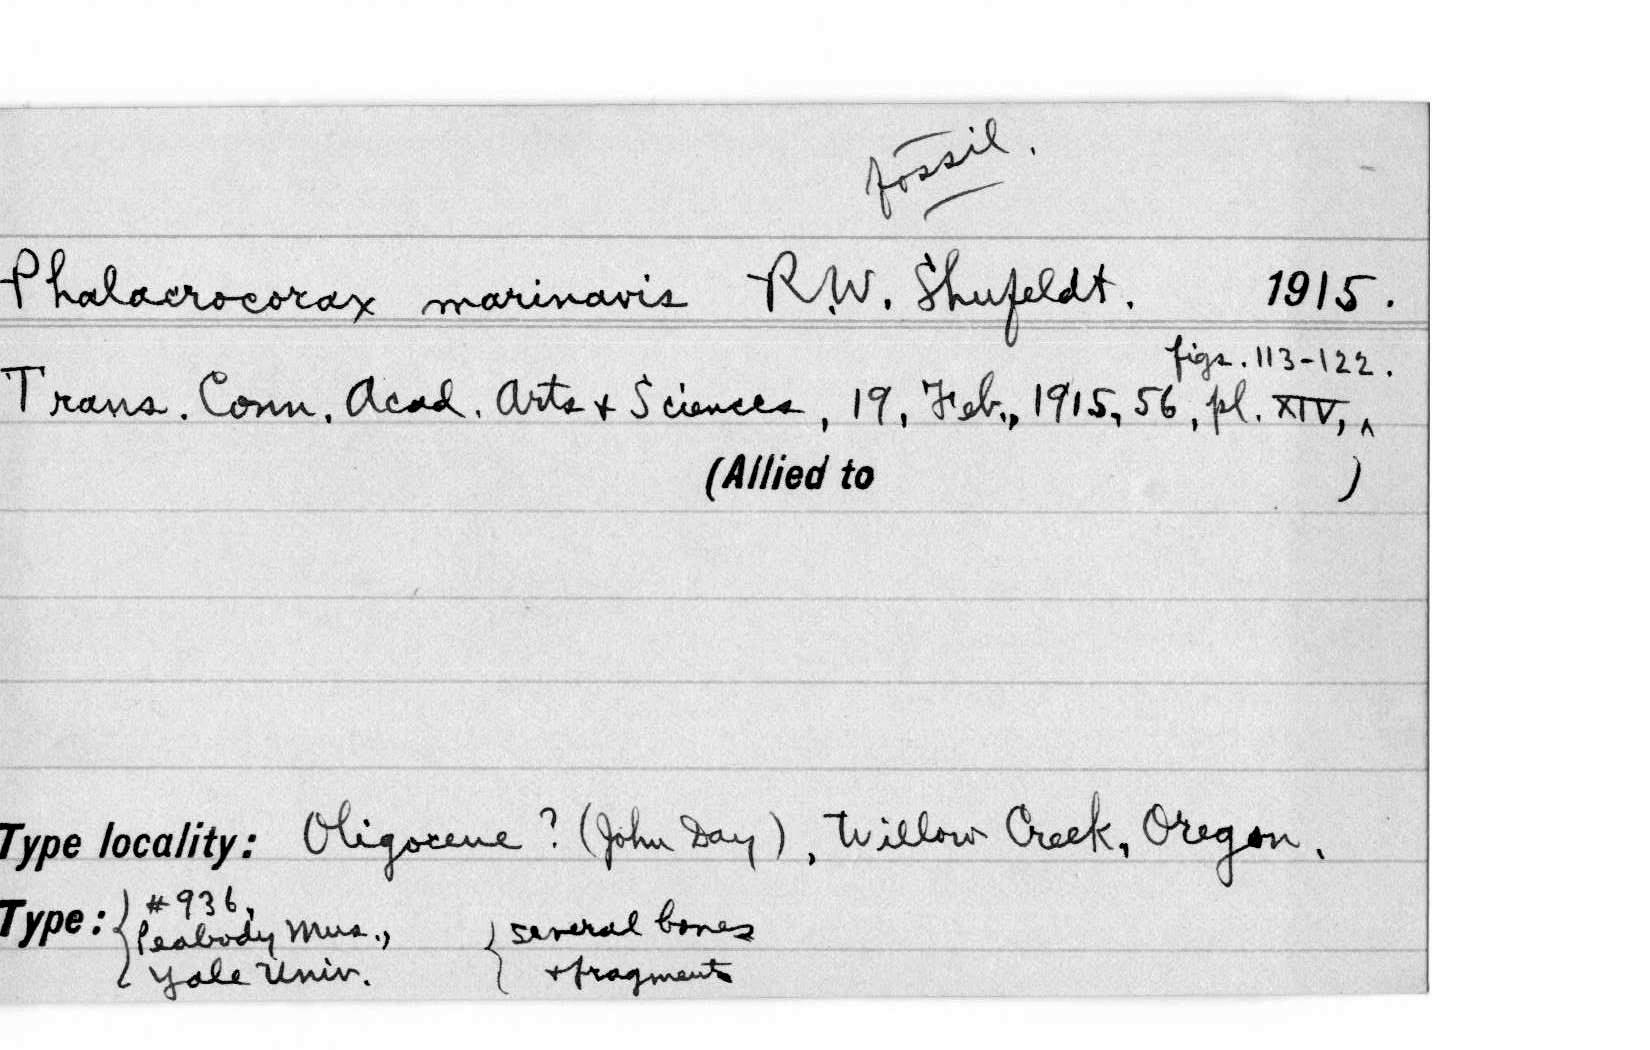 fossil.
Phalacrocorax marinavis R.W. Shufeldt. 1915.
figs. 113-122.
Trans. Conn. Acad. Arts + Sciences, 19, Feb., 1915, 56, pl. XIV, ^
(Allied to )
Type locality: Oligocene? (John Day), Willow Creek, Oregon.
Type: { #936,
Peabody Mus.,
Yale Univ.
{ several bones
+ fragments